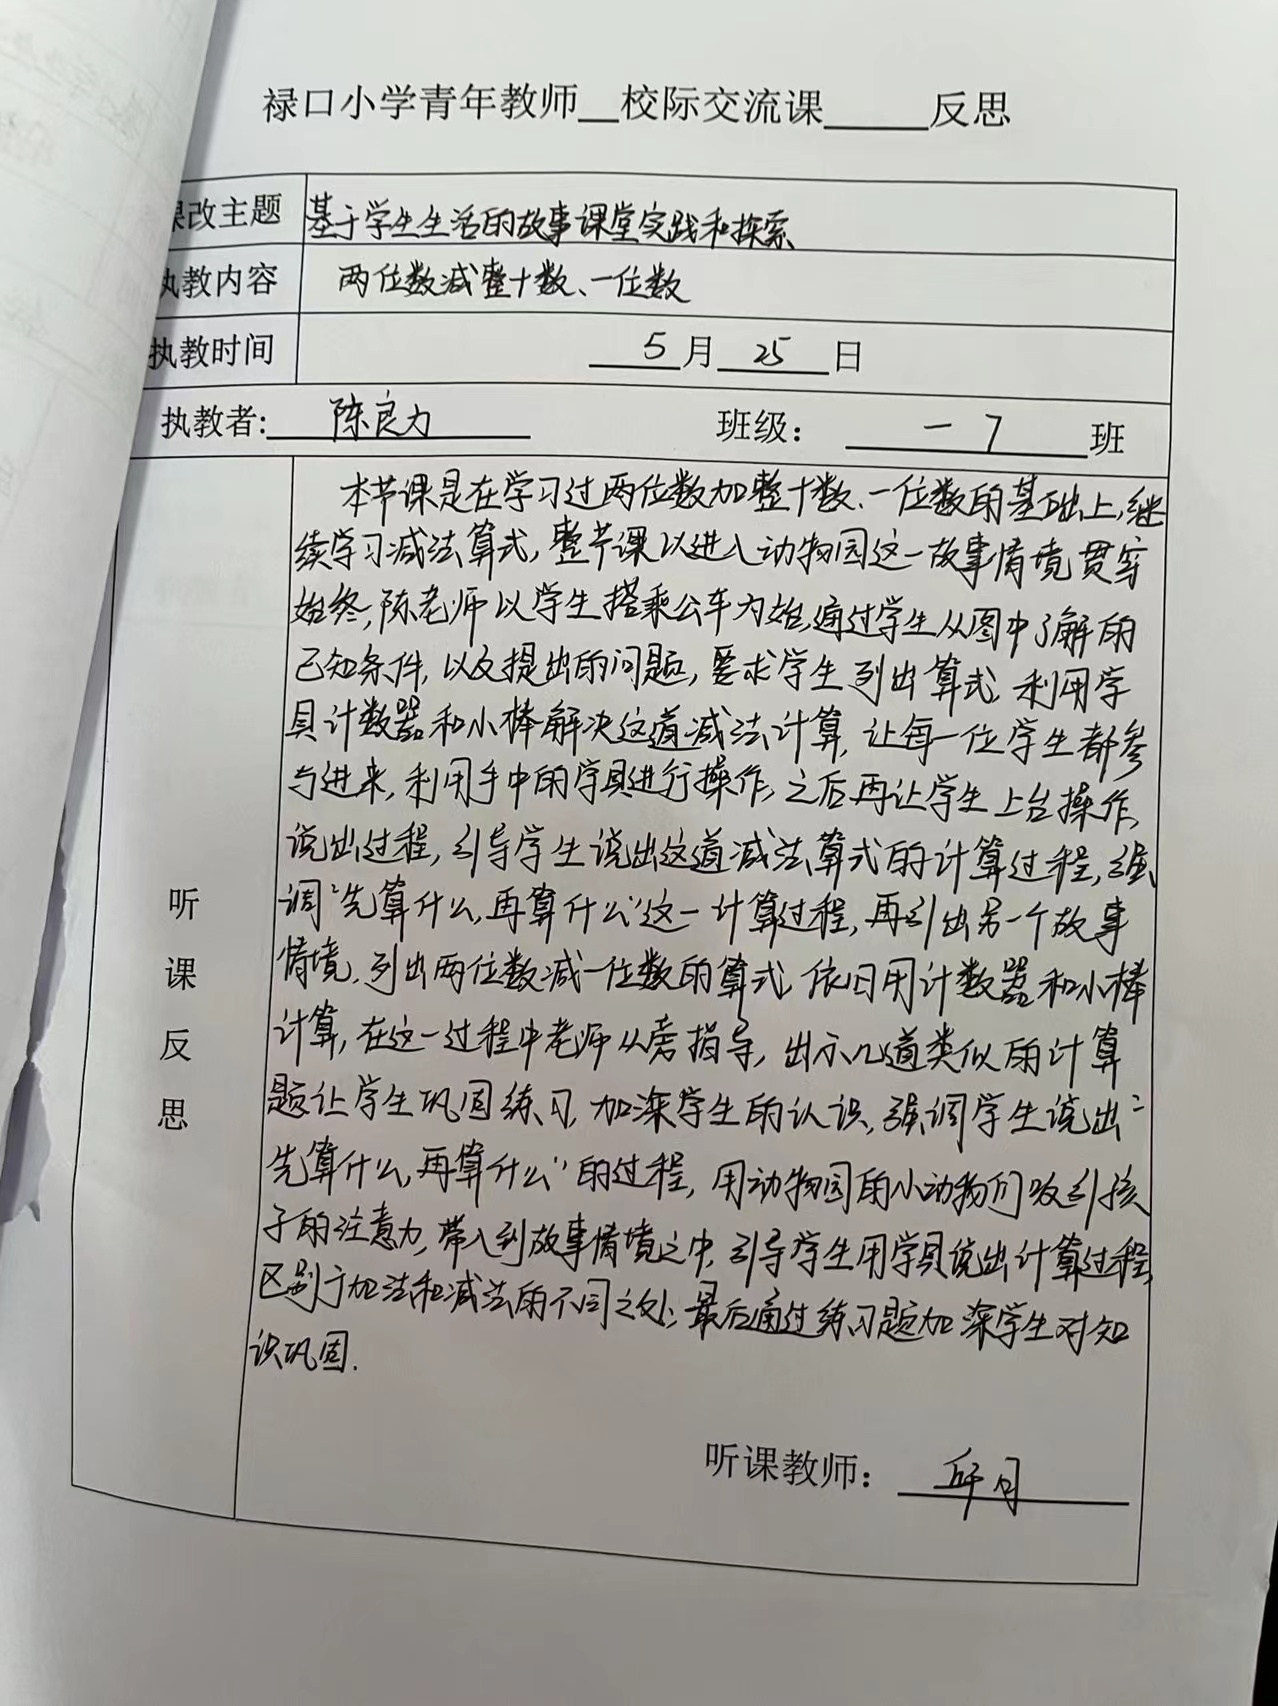 禄口小学青年教师__校际交流课_____反思
课改主题 基于学生生活的故事课堂实践和探索
执教内容 两位数减整十数、一位数
执教时间 5月25日
执教者: 陈良力 班级: 一7班
本节课是在学习过两位数加整十数、一位数的基础上,继
续学习减法算式,整节课以进入动物园这一故事情境贯穿
始终,陈老师以学生搭乘公车为始,通过学生从图中了解的
已知条件,以及提出的问题,要求学生列出算式,利用学
具计数器和小棒解决这道减法计算,让每一位学生都参
与进来,利用手中的学具进行操作,之后再让学生上台操作,
说出过程,引导学生说出这道减法算式的计算过程,强
调“先算什么,再算什么”这一计算过程,再引出另一个故事
情境.列出两位数减一位数的算式,依旧用计数器和小棒
计算,在这一过程中老师从旁指导,出示几道类似的计算
题让学生巩固练习,加深学生的认识,强调学生说出“
先算什么,再算什么”的过程,用动物园的小动物们吸引孩
子的注意力,带入到故事情境之中,引导学生用学具说出计算过程,
区别于加法和减法的不同之处;最后通过练习题加深学生对知
识巩固.
听
课
反
思
听课教师: